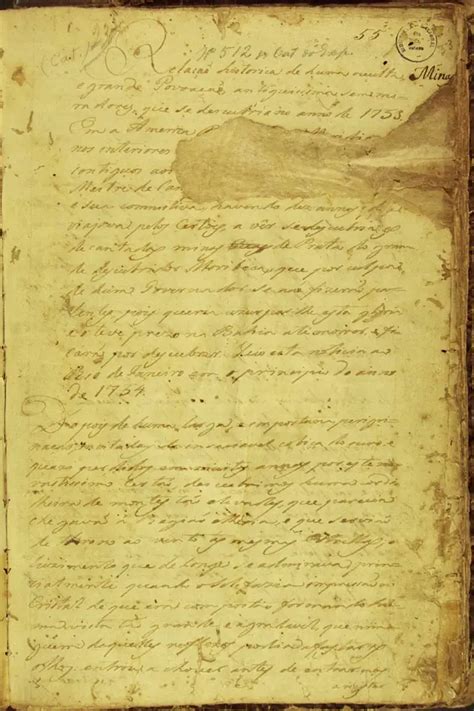 55
Nº 512
Minas
Relação historica de huma occulta,
e grande Povoação antiquissima sem mo-
radores, que se descubrio no anno de 1753.
Em a America
nos interiores
contiguos aos
Mestre de Can
e sua comitiva, havendo dez annos, q̃
viajava pelos Certoẽs, a vêr se descubria as
decantadas minas de Prata do grande
descubridor Moribeca, que por culpa
de hum Governador se naõ fizeraõ pa-
tentes, pois queria uzurparlhe esta gloria
e o teve prezo na Bahia ate morrer, e fi-
caraõ por descubrir. Veio esta noticia ao
Rio de Janeiro em o principio do anno
de 1754.
Depois de huma larga, e importuna peregri-
naçaõ, incitados da insaciavel cobiça de ouro, e
quazi perdidos em muitos annos por este
vastissimo Certaõ, descobrimos huma cordi-
lheira de montes taõ elevados, que parecia
chegavaõ a Regiaõ etherea, e que serviaõ
de throno ao vento, as mesmas Estrellas, o
luzimento que de longe se admirava, princi-
palmente quando o sol fazia impressaõ ao
Cristal de que era composta, formando hu-
ma vista taõ grande e agradavel, que nin-
guem daquelles reflexos podia afastar os
olhos, entrou a chover antes de entrarmos